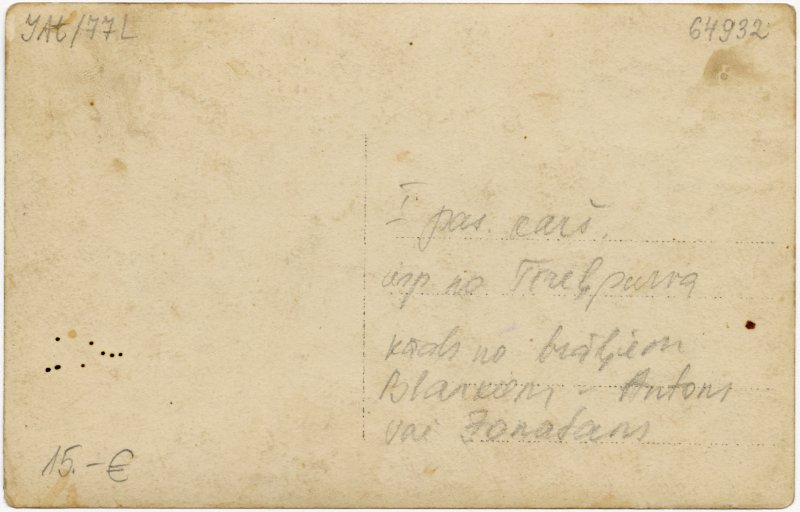 JAt/77L
64932
I pas. karš.
isp no Tireļpurva
kāds no brāļiem
Blankiem - Antons
vai Jonatans
15.-€